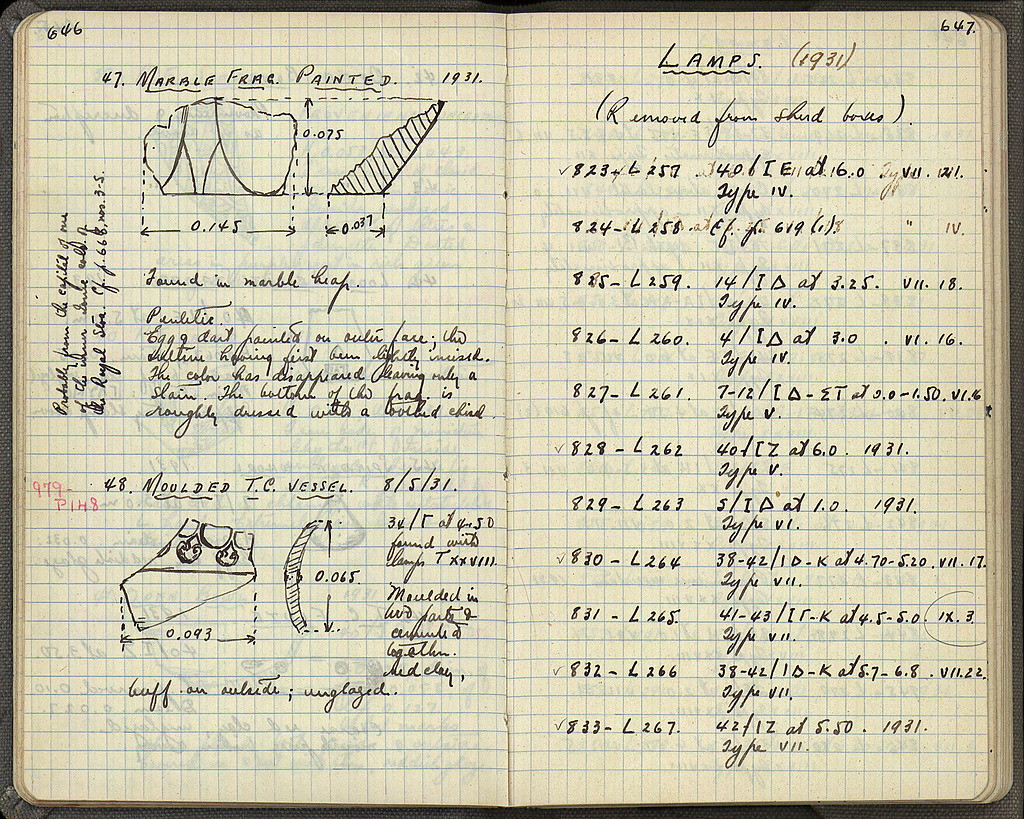 646
47. MARBLE FRAG. PAINTED. 1931.
0.075
0.145
0.037
Probably from the capital of one
of the inner Ionic cols. of
the Royal Stoa. Cf. p. 668, nos. 3-5.
Found in marble heap.
Pentelic.
Egg & dart painted on outer face; the
outline having first been lightly incised.
The color has disappeared leaving only a
stain. The bottom of the frag. is
roughly dressed with a toothed chisel.
979-
P148
48. MOULDED T.C. VESSEL. 8/5/31.
0.065
0.093
34/Γ at 4.50
found with
lamps T XXVIII.
Moulded in
two parts &
cemented
together.
Red clay,
buff on outside; unglazed.
647.
LAMPS. (1931)
(Removed from sherd boxes).
✓823 - L 257 40/ΙΕ at 6.0 VII. 21.
Type IV.
824 - L 258 Cf. p. 619 (1). " IV.
825 - L 259. 14/ΙΔ at 3.25. VII. 18.
Type IV.
826 - L 260. 4/ΙΔ at 3.0. VI. 16.
Type IV.
827 - L 261. 7-12/ΙΔ-ΣΤ at 0.0-1.50. VI.16
Type V.
✓828 - L 262 40/ΙΖ at 6.0. 1931.
Type V.
829 - L 263 5/ΙΔ at 1.0. 1931.
Type VI.
✓830 - L 264 38-42/ΙΔ-Κ at 4.70-5.20. VII. 17.
Type VII.
831 - L 265. 41-43/ΙΓ-Κ at 4.5-5.0. IX. 3.
Type VII.
✓832 - L 266 38-42/ΙΔ-Κ at 5.7-6.8. VII.22.
Type VII.
✓833 - L 267. 42/ΙΖ at 5.50. 1931.
Type VII.